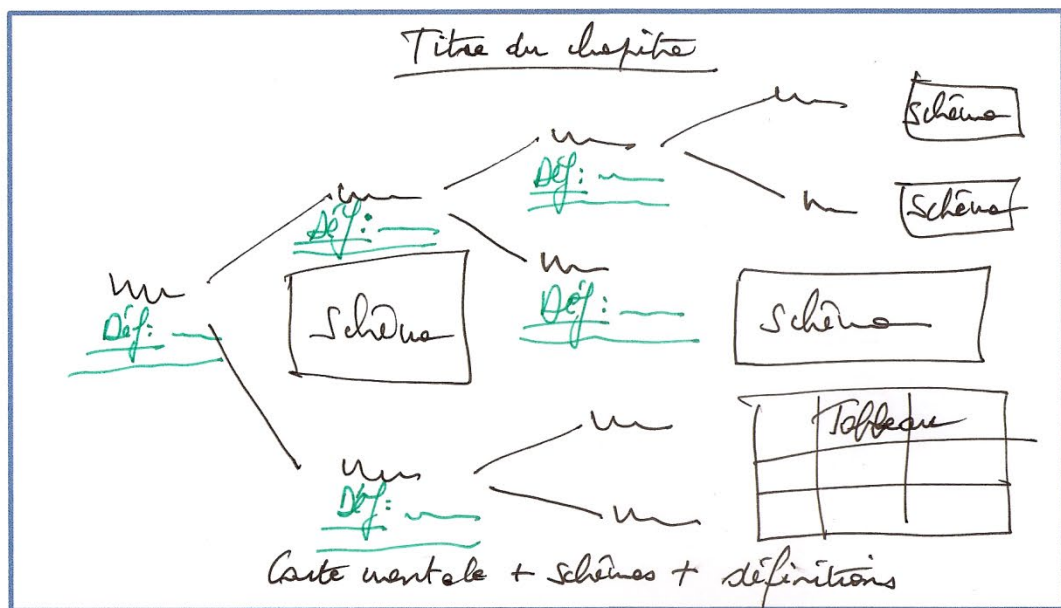 Titre du chapitre
Schéma
Déf:
Schéma
Déf:
Déf:
Déf:
Schéma
Schéma
Tableau
Déf:
Carte mentale + schémas + définitions